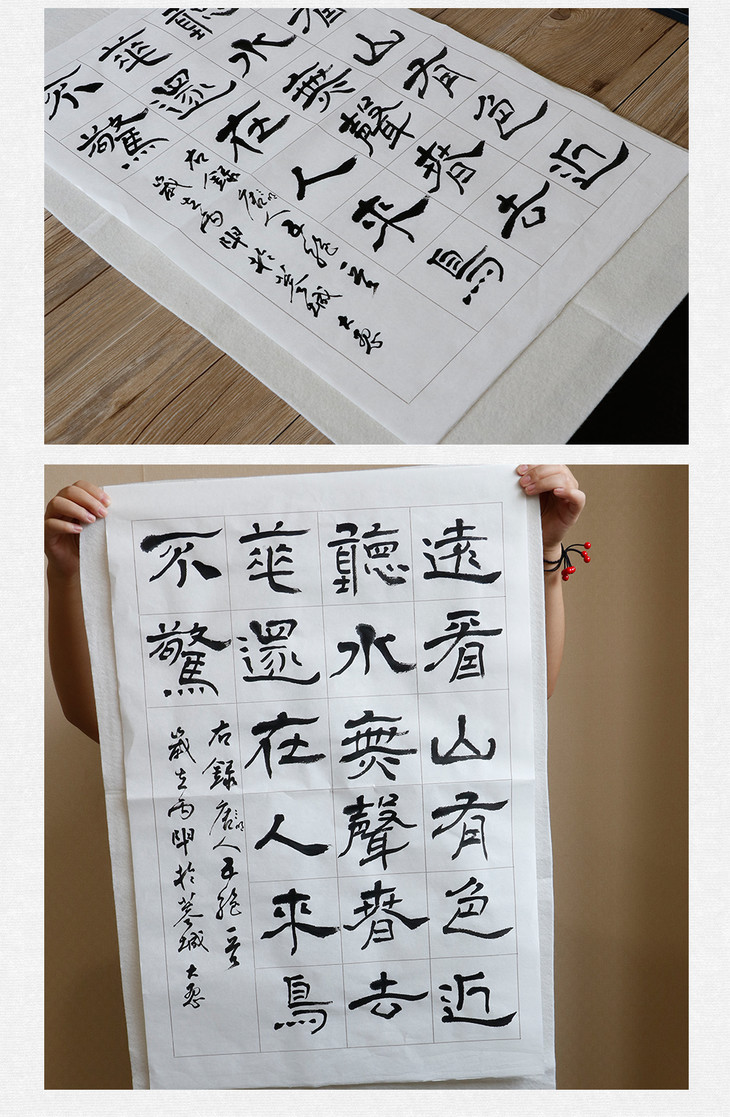 看山有色近
聽水無聲春去
華還在人來鳥
不驚
右錄唐人五絕一首
歲在丙申於蓉城 大
遠看山有色近
聽水無聲春去
華還在人來鳥
不驚
右錄唐人五絕一首
歲在丙申於蓉城 大